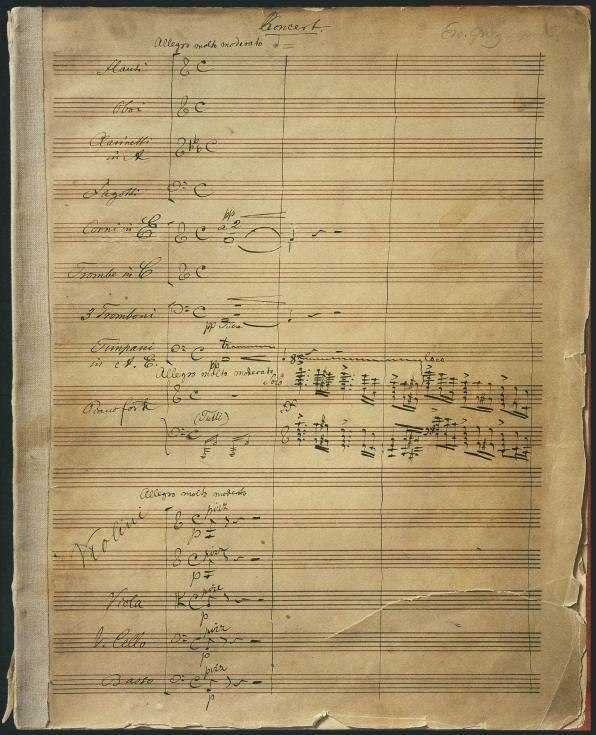 Concert.
Allegro molto moderato
Flauti
Oboi
Clarinetti
in A
Fagotti
Corni in E
pp
a 2
Trombe in C
3 Tromboni
pp
Timpani
in A. E.
tr
pp
8
loco
Allegro molto moderato
Solo
Pianoforte
ff
(Tutti)
Allegro molto moderato
Violini
pizz
p
pizz
p
Viola
pizz
p
V. Cello
pizz
p
Basso
pizz
p